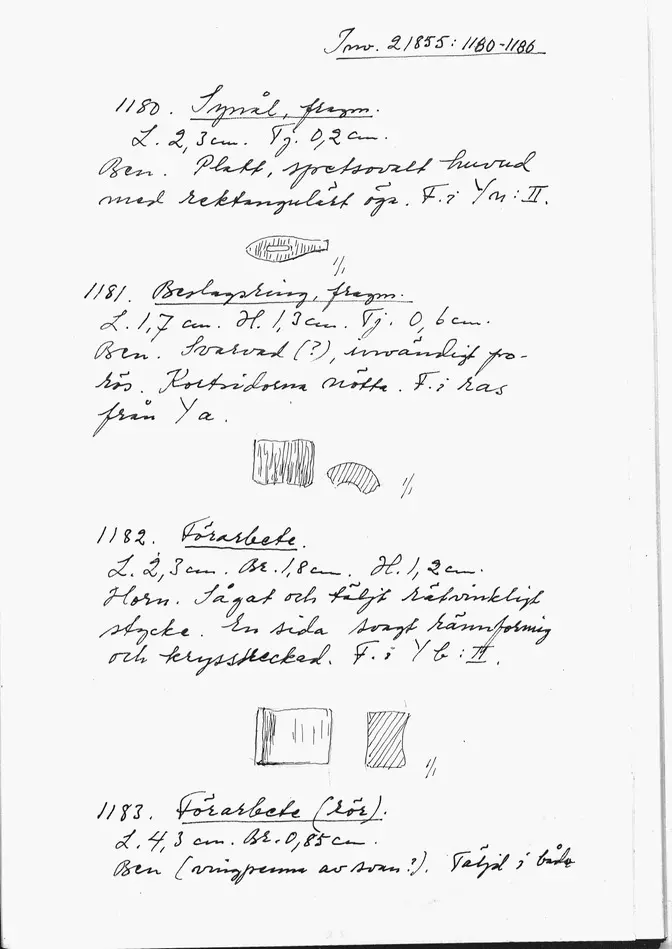 Inv. 21855: 1180-1186
1180. Synål, fragm.
L. 2,3 cm. Tj. 0,2 cm.
Ben. Platt, spetsovalt huvud
med rektangulärt öga. F. i Y n : II.
1/1
1181. Beslagsring, fragm.
L. 1,7 cm. H. 1,3 cm. Tj. 0,6 cm.
Ben. Svarvad (?), invändigt po-
rös. Kortsidorna nötta. F. i ras
från Y a.
1/1
1182. Förarbete.
L. 2,3 cm. Br. 1,8 cm. H. 1,2 cm.
Horn. Sågat och täljt rätvinkligt
stycke. En sida svagt rännformig
och krysstreckad. F. i Y b : II.
1/1
1183. Förarbete (rör).
L. 4,3 cm. Br. 0,85 cm.
Ben (vingpenna av svan?). Täljd i båda